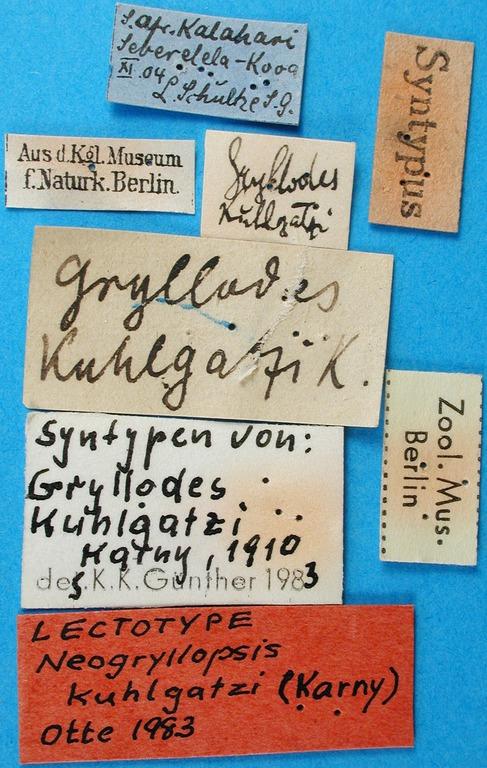 S. afr. Kalahari
Severelela-Kooa
XI 04 L. Schultze S. g.
Syntypus
Aus d. Kgl. Museum
f. Naturk. Berlin.
Gryllodes
Kuhlgatzi
Gryllodes
Kuhlgatzi K.
Zool. Mus.
Berlin
Syntypen von:
Gryllodes
Kuhlgatzi
Karny, 1910
des. K. K. Günther 1983
LECTOTYPE
Neogryllopsis
Kuhlgatzi (Karny)
Otte 1983